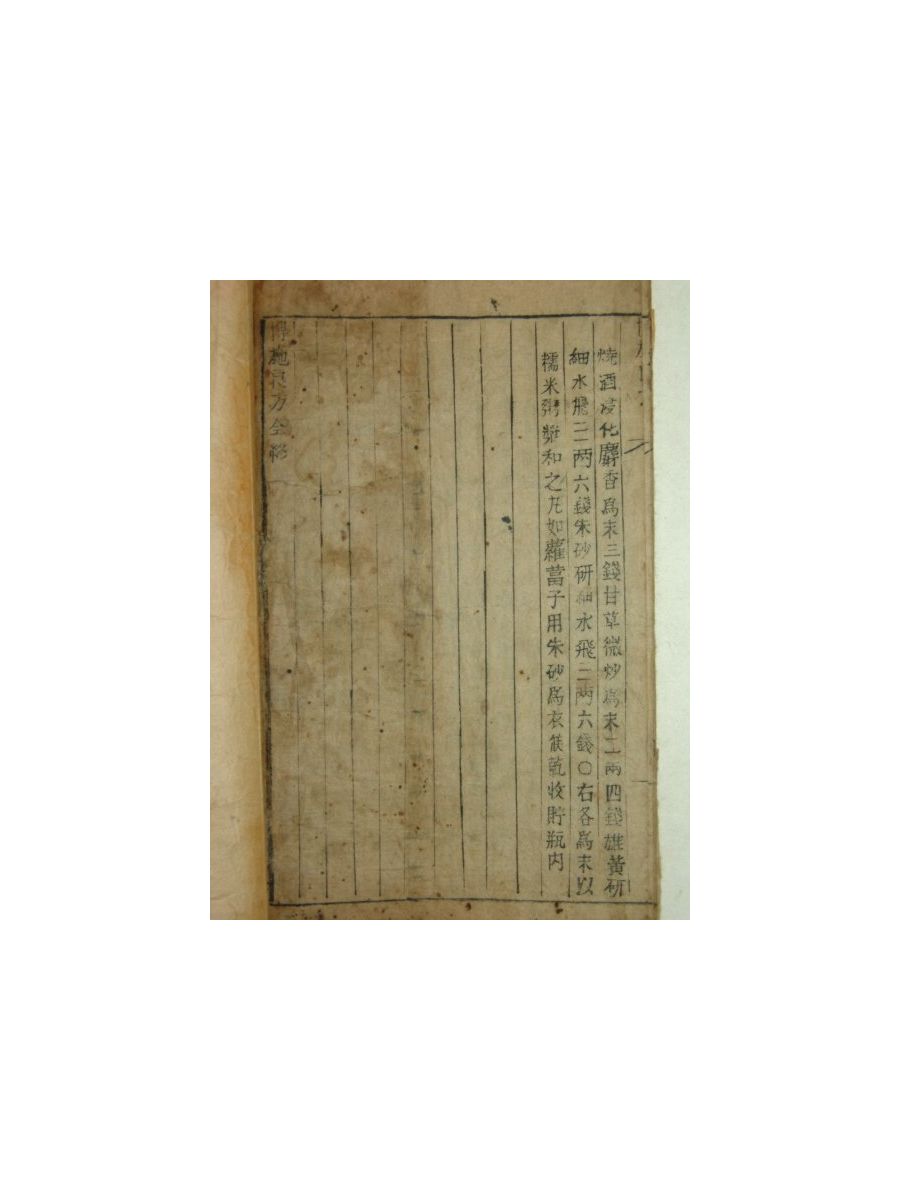 燒酒浸化麝香爲末三錢甘草微炒爲末二兩四錢雄黃研
細水飛三兩六錢朱砂研細水飛二兩六錢〇右各爲末以
糯米粥和之丸如蘿葍子用朱砂爲衣候乾收貯瓶內
博施良方全終